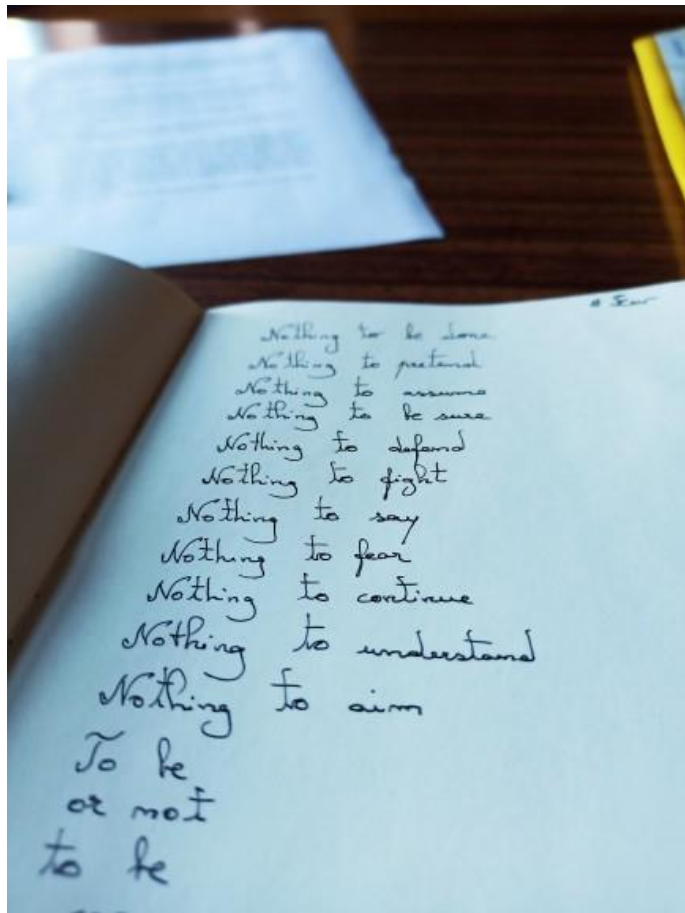 # Fear
Nothing to be done
Nothing to pretend
Nothing to assume
Nothing to be sure
Nothing to defend
Nothing to fight
Nothing to say
Nothing to fear
Nothing to continue
Nothing to understand
Nothing to aim
To be
or not
to be